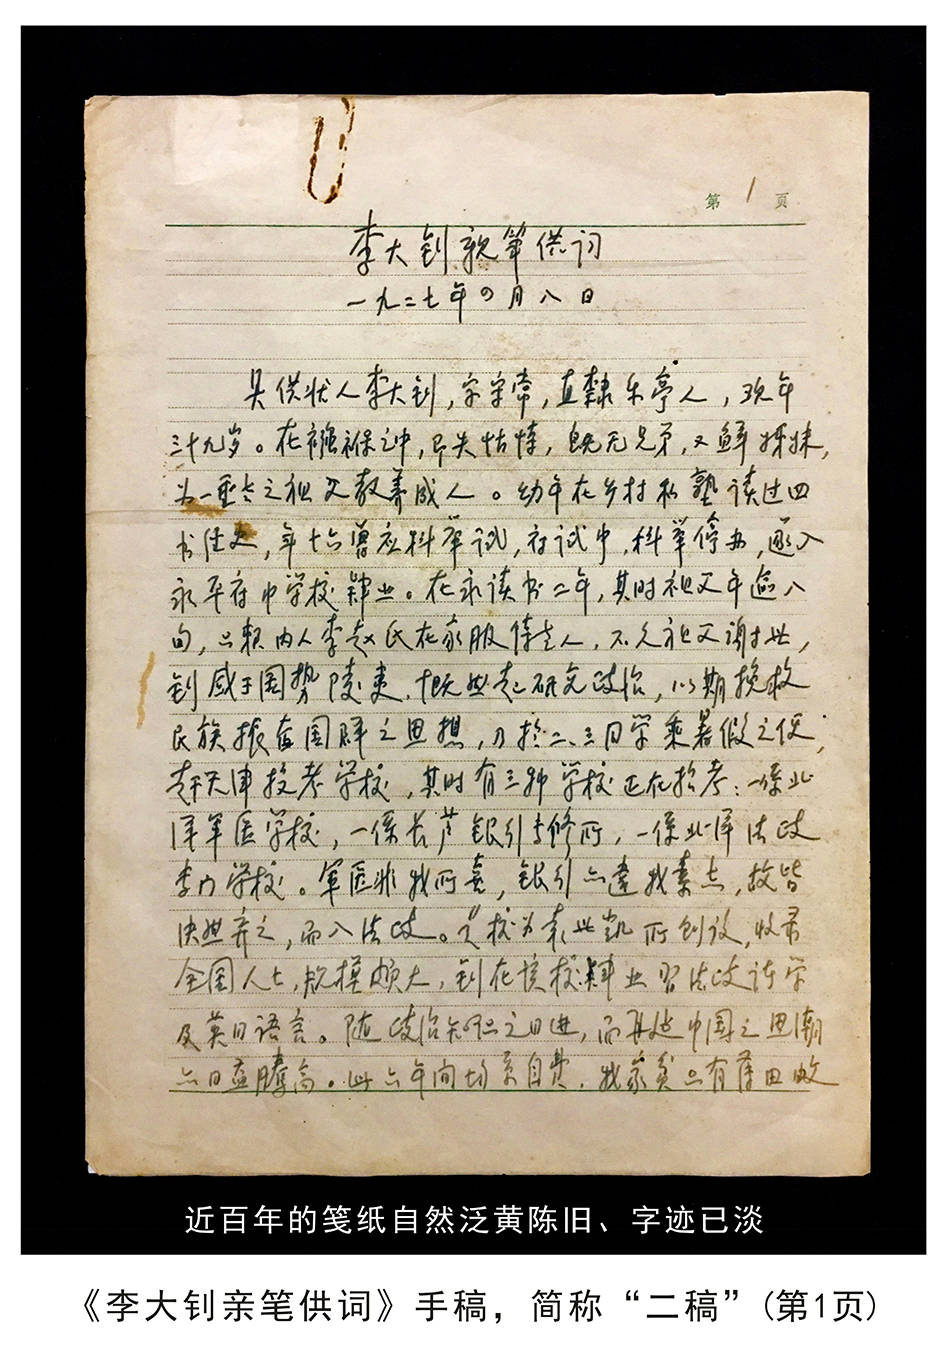 第 1 页
李大钊亲笔供词
一九二七年四月八日
具供状人李大钊，字守常，直隶乐亭人，现年
三十九岁。在襁褓之中，即失怙恃，既无兄弟，又鲜姊妹，
为一垂老之祖父教养成人。幼年在乡村私塾读过四
书经史，年十六曾应科举试，府试中，科举停办，遂入
永平府中学校肄业。在永读书二年，其时祖父年逾八
旬，只赖内人李赵氏在家服侍老人，不久祖父谢世，
钊感于国势陵夷，慨然起研究政治，以期挽救
民族振奋国群之思想，乃於二、三同学乘暑假之便，
赴天津投考学校，其时有三种学校正在招考：一係北
洋军医学校，一係长芦银行专修所，一係北洋法政
专门学校。军医非我所喜，银行亦违我素志，故皆
决然弃之，而入法政。是校为袁世凯所创设，收录
全国人士，规模颇大，钊在该校肄业习法政诸学
及英日语言。随政治知识之日进，而再建中国之思潮
亦日益腾高。此六年间均系自费，我家贫只有薄田数
近百年的笺纸自然泛黄陈旧、字迹已淡
《李大钊亲笔供词》手稿，简称“二稿”(第1页)